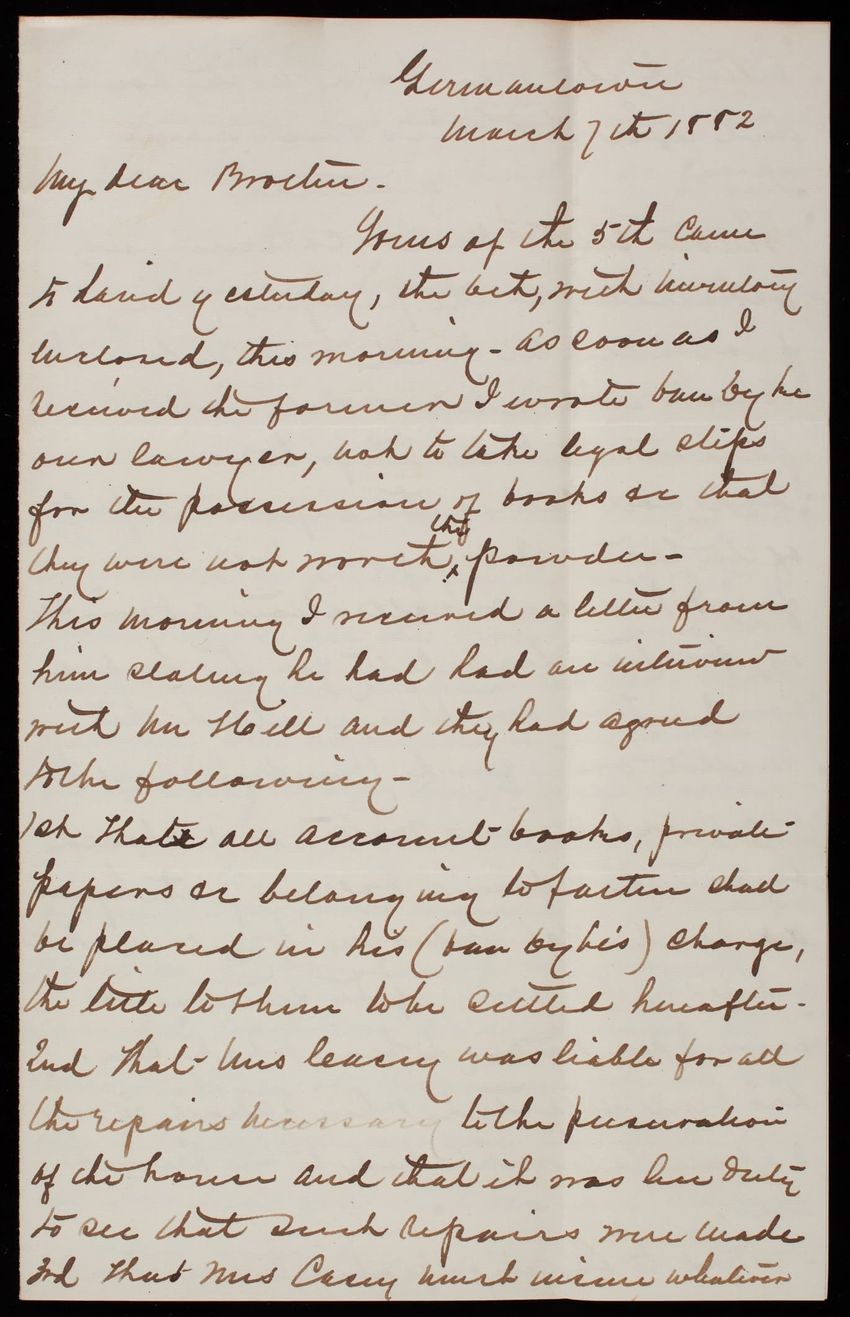 Germantown
March 7th 1882
My dear Brother -
Yours of the 5th came
to hand yesterday, the 6th, with inventory
enclosed, this morning - As soon as I
received the former I wrote
our lawyer, not to take legal steps
for the possession of books &c that
they were not worth the powder -
This morning I received a letter from
him stating he had had an interview
with Mr Hill and they had agreed
to the following -
1st That all account books, private
papers &c belonging to father shall
be placed in his ( ) charge,
the title to them to be settled hereafter -
2nd That Mrs Casey was liable for all
the repairs necessary to the preservation
of the house and that it was her duty
to see that such repairs were made
3rd That Mrs Casey must insure whatever